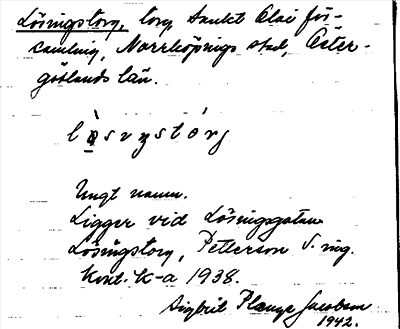 Lösingstorg, torg Sankt Olai för-
samling, Norrköpings stad, Öster-
götlands län.
Ungt namn.
Ligger vid Lösingsgatan
Lösingstorg, Petterson S. ing.
Kont. K-a 1938.
Sigbrit Plange Jacobson
1942.